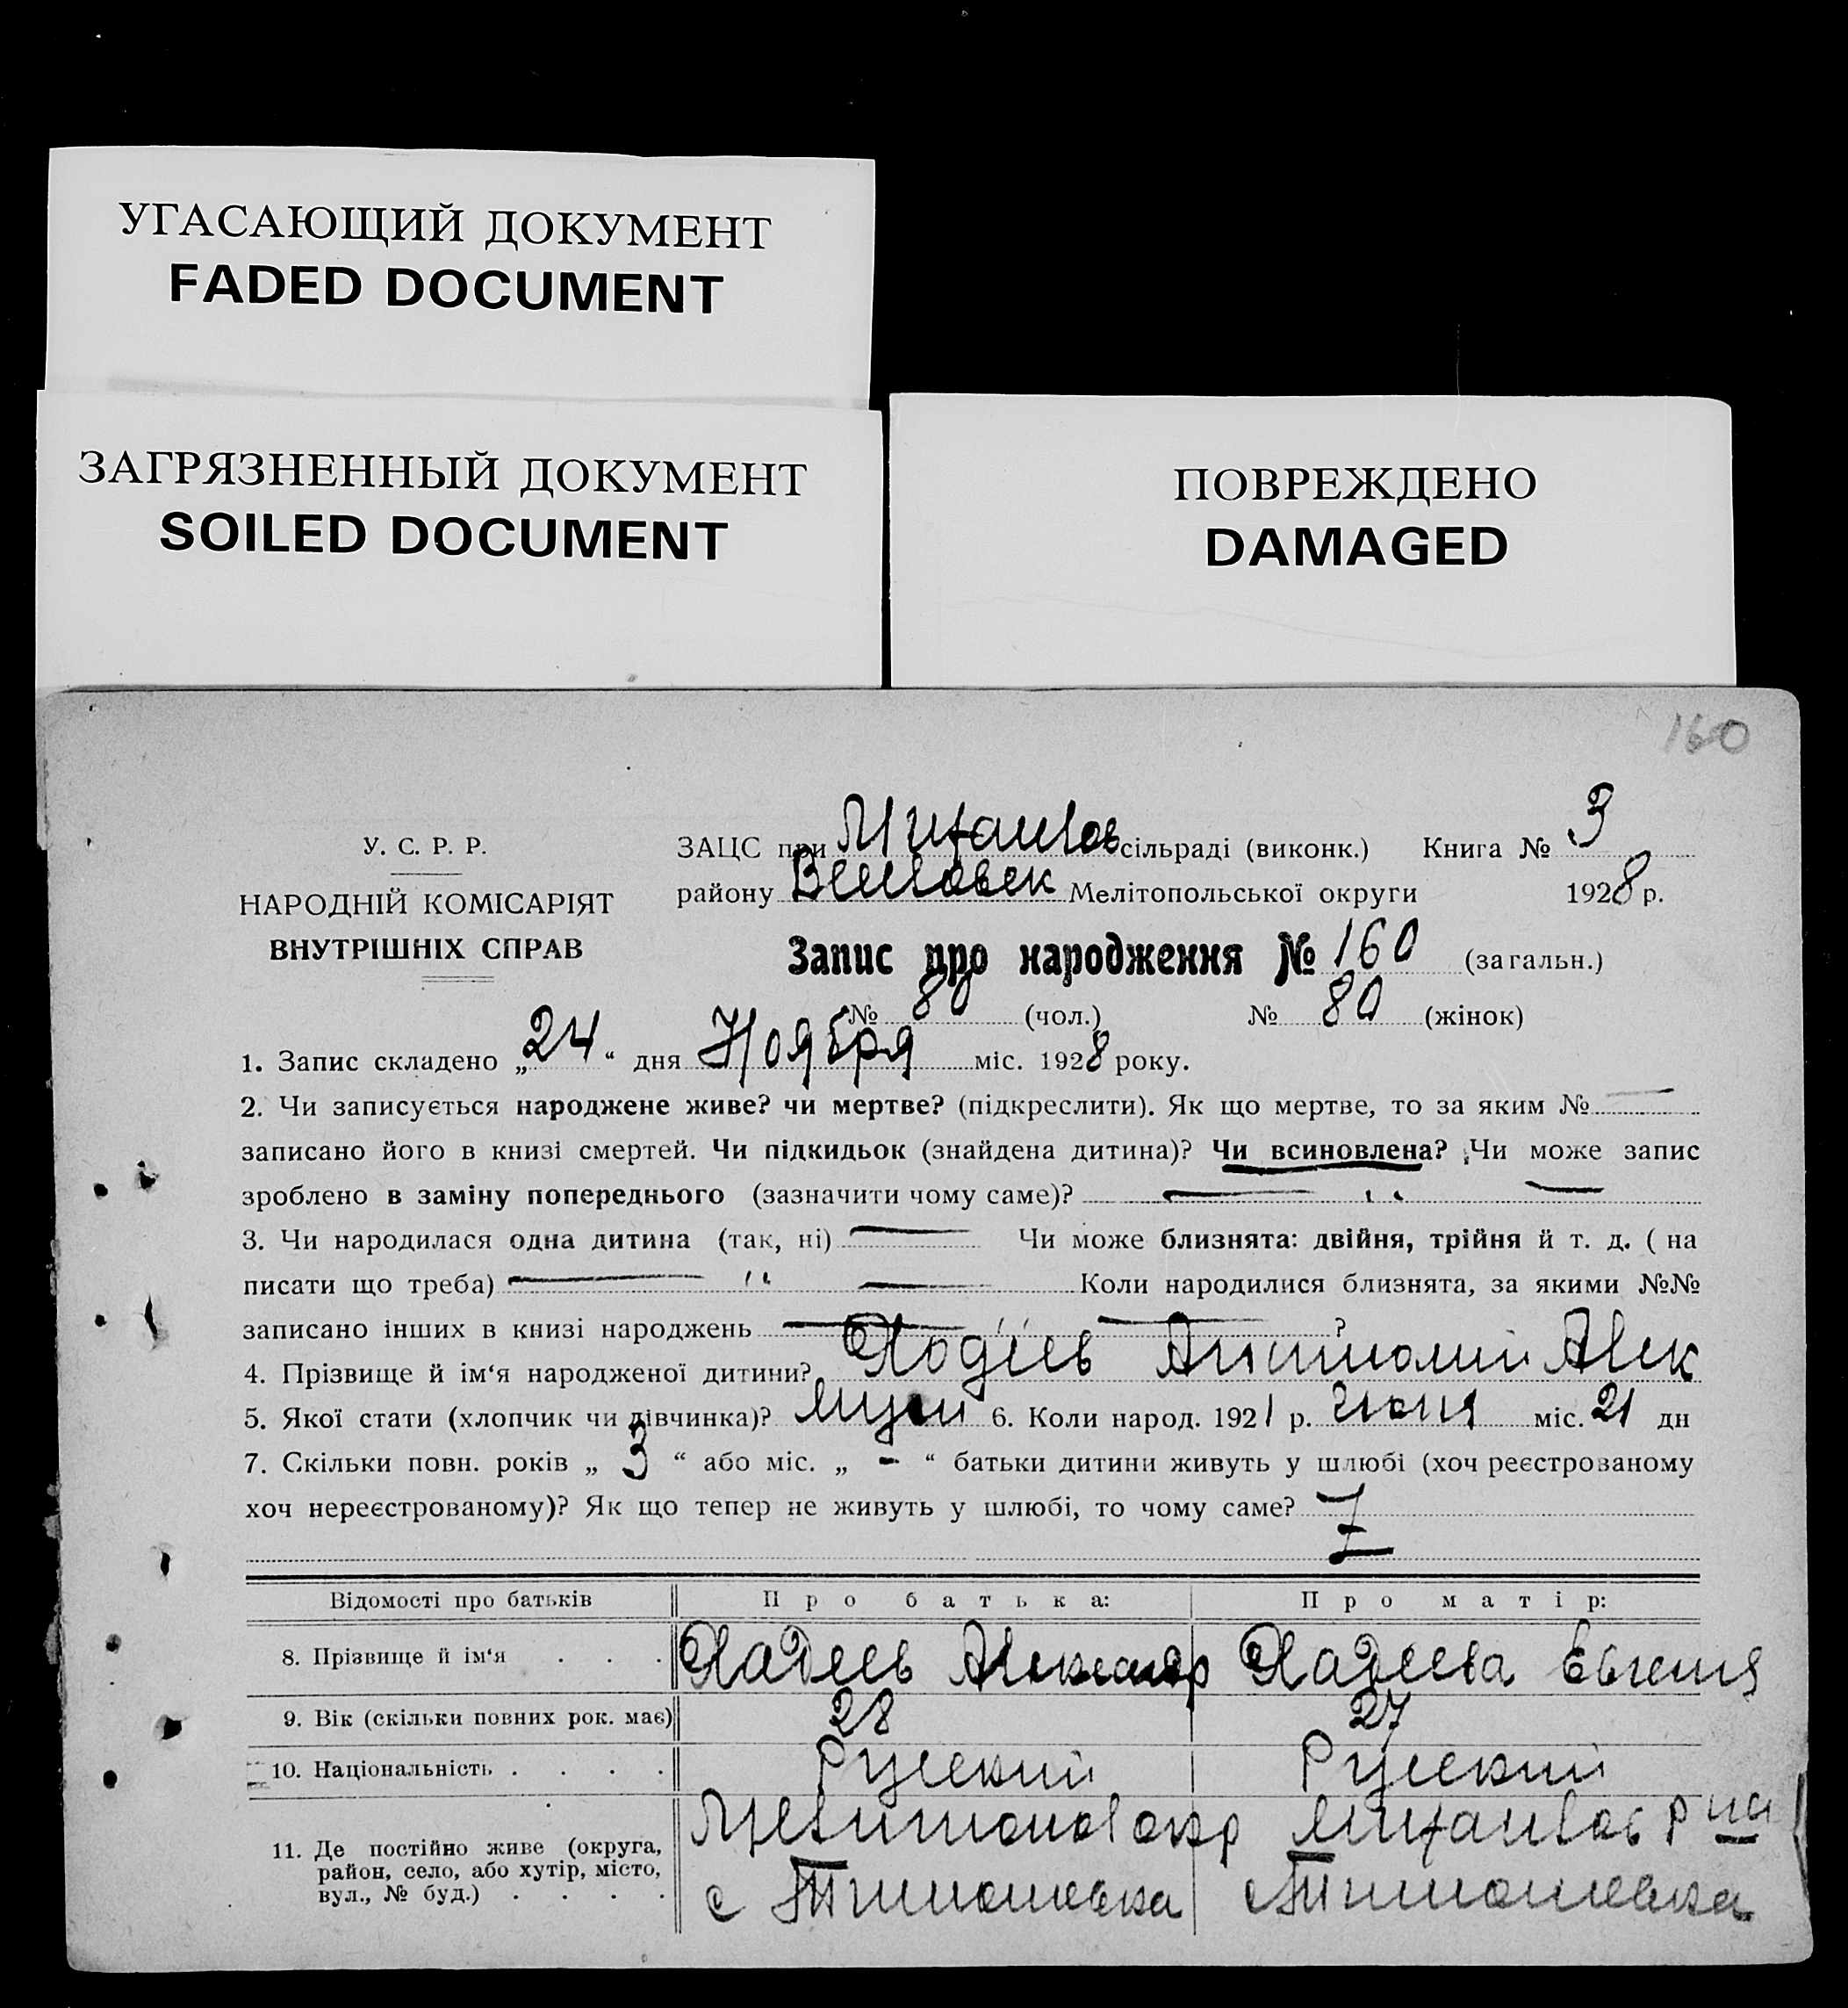 УГАСАЮЩИЙ ДОКУМЕНТ
FADED DOCUMENT
ЗАГРЯЗНЕННЫЙ ДОКУМЕНТ
SOILED DOCUMENT
ПОВРЕЖДЕНО
DAMAGED
160
У. С. Р. Р.
НАРОДНІЙ КОМІСАРІЯТ
ВНУТРІШНІХ СПРАВ
ЗАЦС при Михайлов сільраді (виконк.) Книга № 3
району Веселовск Мелітопольської округи 1928 р.
Запис про народження № 160 (загальн.)
№ 80 (чол.) № 80 (жінок)
1. Запис складено „24“ дня Ноября міс. 1928 року.
2. Чи записується народжене живе? чи мертве? (підкреслити). Як що мертве, то за яким № —
записано його в книзі смертей. Чи підкидьок (знайдена дитина)? Чи всиновлена? Чи може запис
зроблено в заміну попереднього (зазначити чому саме)? — „ —
3. Чи народилася одна дитина (так, ні) — Чи може близнята: двійня, трійня й т. д. ( на
писати що треба) — „ — Коли народилися близнята, за якими №№
записано інших в книзі народжень — „ — ?
4. Прізвище й ім‘я народженої дитини? Анатолий Алек
5. Якої стати (хлопчик чи дівчинка)? Муж 6. Коли народ. 1921 р. Июня міс. 21 дн
7. Скільки повн. років „ 3 “ або міс. „ - “ батьки дитини живуть у шлюбі (хоч реєстрованому
хоч нереєстрованому)? Як що тепер не живуть у шлюбі, то чому саме?
Відомості про батьків Про батька: Про матір:
8. Прізвище й ім‘я . . . Фадеев Александр Фадеева Евгения
9. Вік (скільки повних рок. має) 28 27
10. Національність . . . . Русский Русский
11. Де постійно живе (округа,
район, село, або хутір, місто,
вул., № буд.) . . . .
Мелитопол окр Михайлов р на
с Тимошевка с Тимошевка